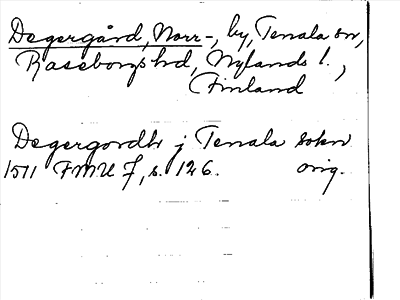 Degergård, Norr-, by, Tenala sn,
Raseborgs hd, Nylands l.,
Finland
Degergordh j Tenala sokn
1511 FMU 7, s. 126. orig.